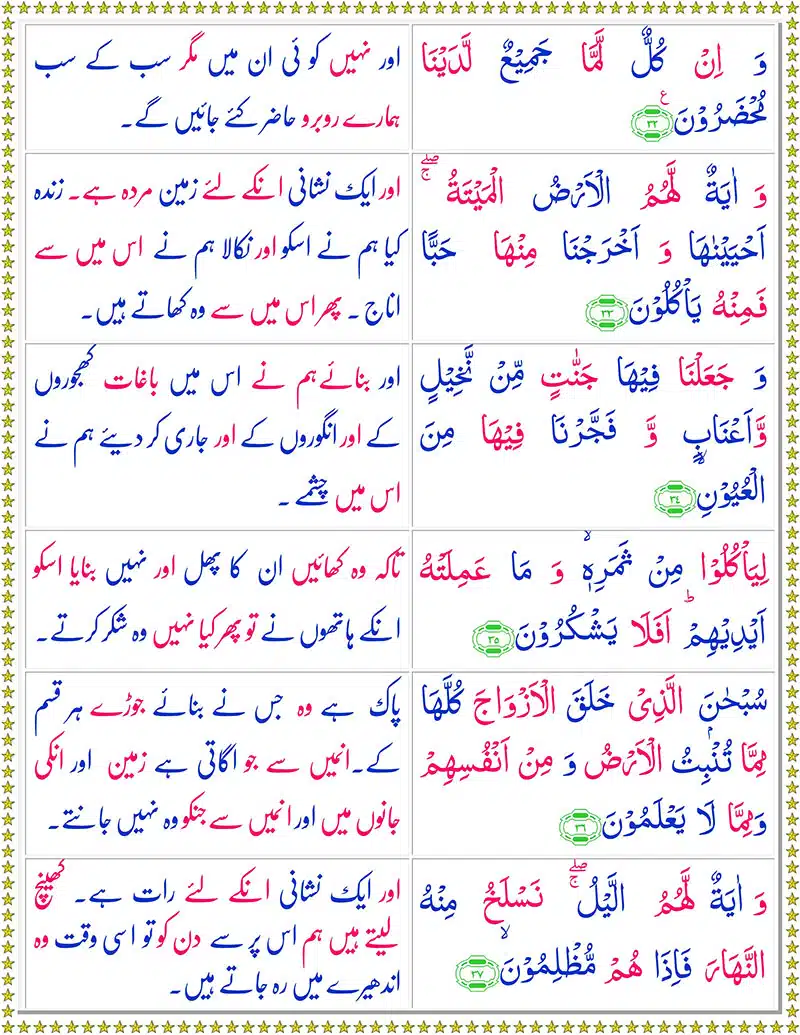 وَ اِنْ كُلٌّ لَّمَّا جَمِيْعٌ لَّدَيْنَا
مُحْضَرُوْنَ ۝٣٢ ع
اور نہیں کوئی ان میں مگر سب کے سب
ہمارے روبرو حاضر کئے جائیں گے۔
وَ اٰيَةٌ لَّهُمُ الْاَرْضُ الْمَيْتَةُ ۖۚ
اَحْيَيْنٰهَا وَ اَخْرَجْنَا مِنْهَا حَبًّا
فَمِنْهُ يَاْكُلُوْنَ ۝٣٣
اور ایک نشانی انکے لئے زمین مردہ ہے۔ زندہ
کیا ہم نے اسکو اور نکالا ہم نے اس میں سے
اناج ۔ پھر اس میں سے وہ کھاتے ہیں۔
وَ جَعَلْنَا فِيْهَا جَنّٰتٍ مِّنْ نَّخِيْلٍ
وَّاَعْنَابٍ وَّ فَجَّرْنَا فِيْهَا مِنَ
الْعُيُوْنِۙ ۝٣٤
اور بنائے ہم نے اس میں باغات کھجوروں
کے اور انگوروں کے اور جاری کر دیئے ہم نے
اس میں چشمے ۔
لِيَاْكُلُوْا مِنْ ثَمَرِهٖۙ وَ مَا عَمِلَتْهُ
اَيْدِيْهِمْؕ اَفَلَا يَشْكُرُوْنَ ۝٣٥
تاکہ وہ کھائیں ان کا پھل اور نہیں بنایا اسکو
انکے ہاتھوں نے تو پھر کیا نہیں وہ شکر کرتے۔
سُبْحٰنَ الَّذِىْ خَلَقَ الْاَزْوَاجَ كُلَّهَا
مِمَّا تُنْۢبِتُ الْاَرْضُ وَ مِنْ اَنْفُسِهِمْ
وَمِمَّا لَا يَعْلَمُوْنَ ۝٣٦
پاک ہے وہ جس نے بنائے جوڑے ہر قسم
کے۔ انمیں سے جو اگاتی ہے زمین اور انکی
جانوں میں اور انمیں سے جنکو وہ نہیں جانتے۔
وَ اٰيَةٌ لَّهُمُ الَّيْلُ ۖۚ نَسْلَخُ مِنْهُ
النَّهَارَ فَاِذَا هُمْ مُّظْلِمُوْنَۙ ۝٣٧
اور ایک نشانی انکے لئے رات ہے۔ کھینچ
لیتے ہیں ہم اس پر سے دن کو تو اسی وقت وہ
اندھیرے میں رہ جاتے ہیں۔